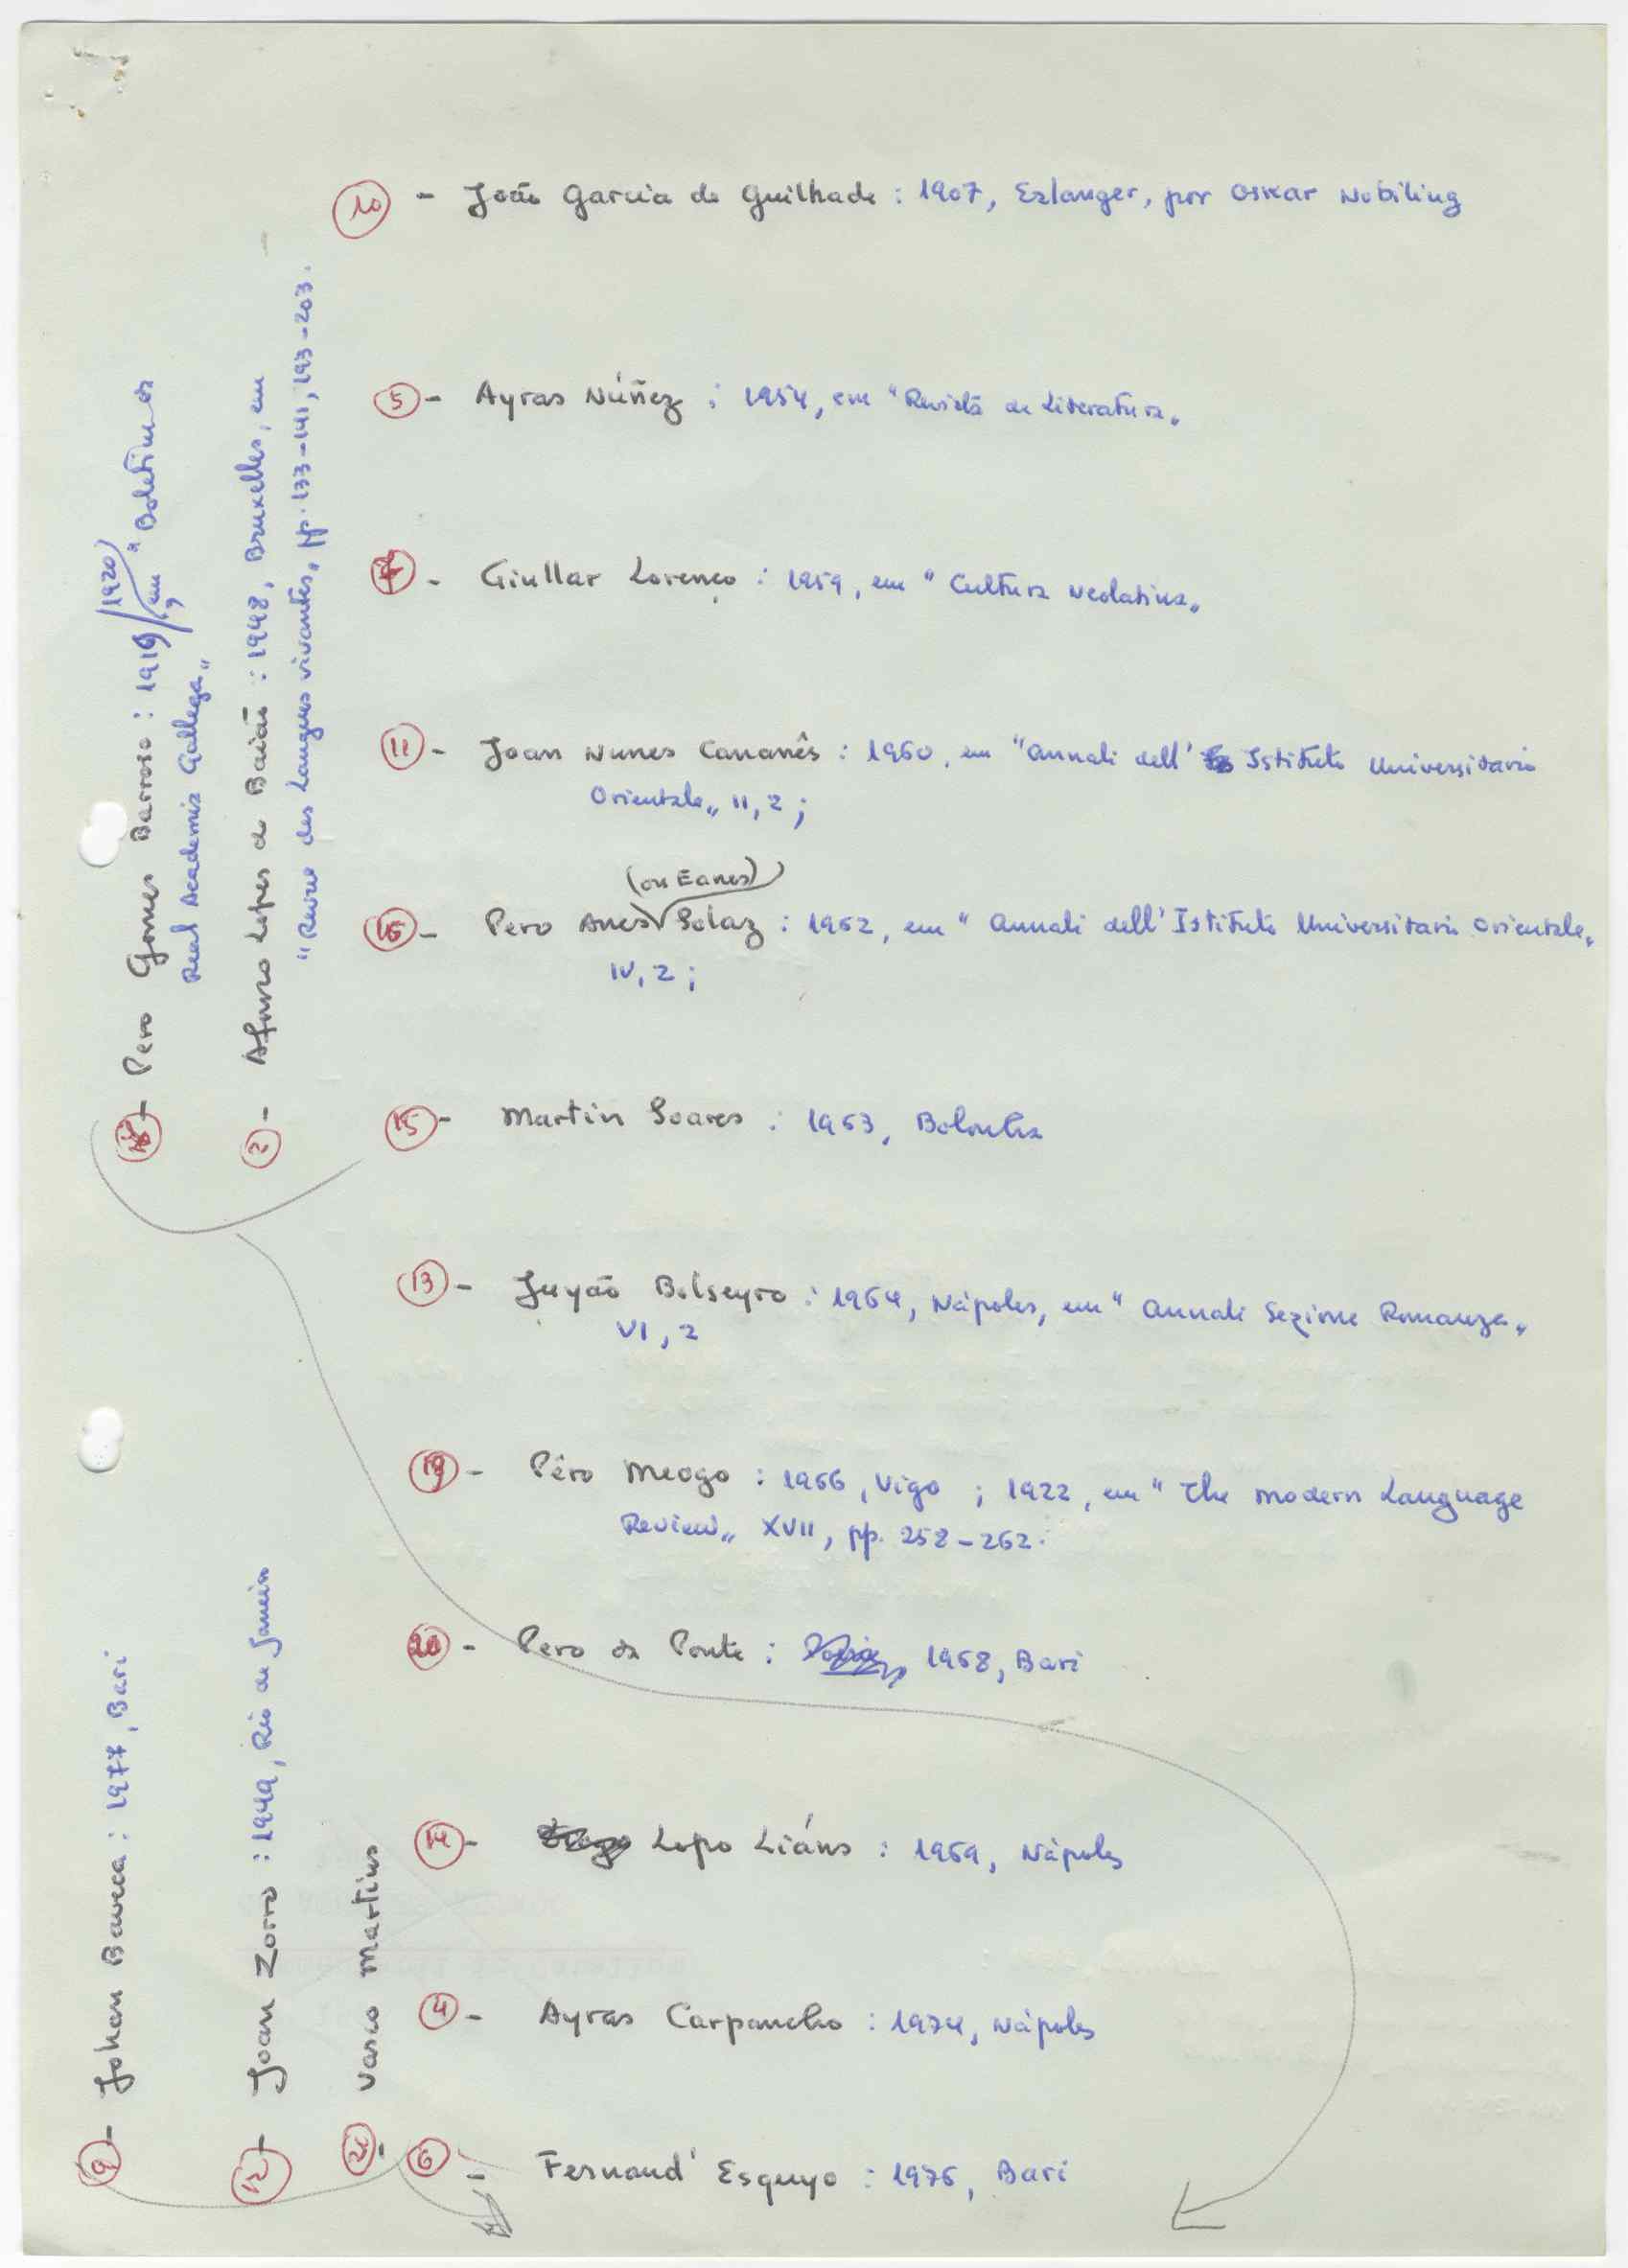 10 - João Garcia de Guilhade : 1907, Erlanger, por Oskar Nobiling
5 - Ayras Núñez : 1954, em "Revista de Literatura„
- Giullar Lorenço : 1959, em "Cultura Neolatina„
11 - Joan Nunes Cananês : 1960, em "Annali dell' Istituto Universitario
Orientale„ II, 2 ;
(ou Eanes)
16 - Pero Anes Solaz : 1962, em "Annali dell'Istituto Universitario Orientale„
IV, 2 ;
15 - Martin Soares : 1963, Bolonha
13 - Juyão Bolseyro : 1964, Nápoles, em "Annali Sezione Romanza„
VI, 2
19 - Pêro Meogo : 1966, Vigo ; 1922, em "The Modern Language
Review„ XVII, pp. 258-262.
20 - Pero da Ponte : 1968, Bari
14 - Lopo Liáns : 1969, Nápoles
4 - Ayras Carpancho : 1974, Nápoles
6 - Fernand' Esquyo : 1976, Bari
- Pero Gomes Barroso : 1919/1920, em "Boletim da
Real Academia Gallega„
2 - Afonso Lopes de Baião : 1948, Bruxelles, em
"Revue des Langues vivantes„ pp. 133-141, 193-203.
9 - Johan Baveca : 1977, Bari
12 - Joan Zorro : 1949, Rio de Janeiro
21 - Vasco Martins